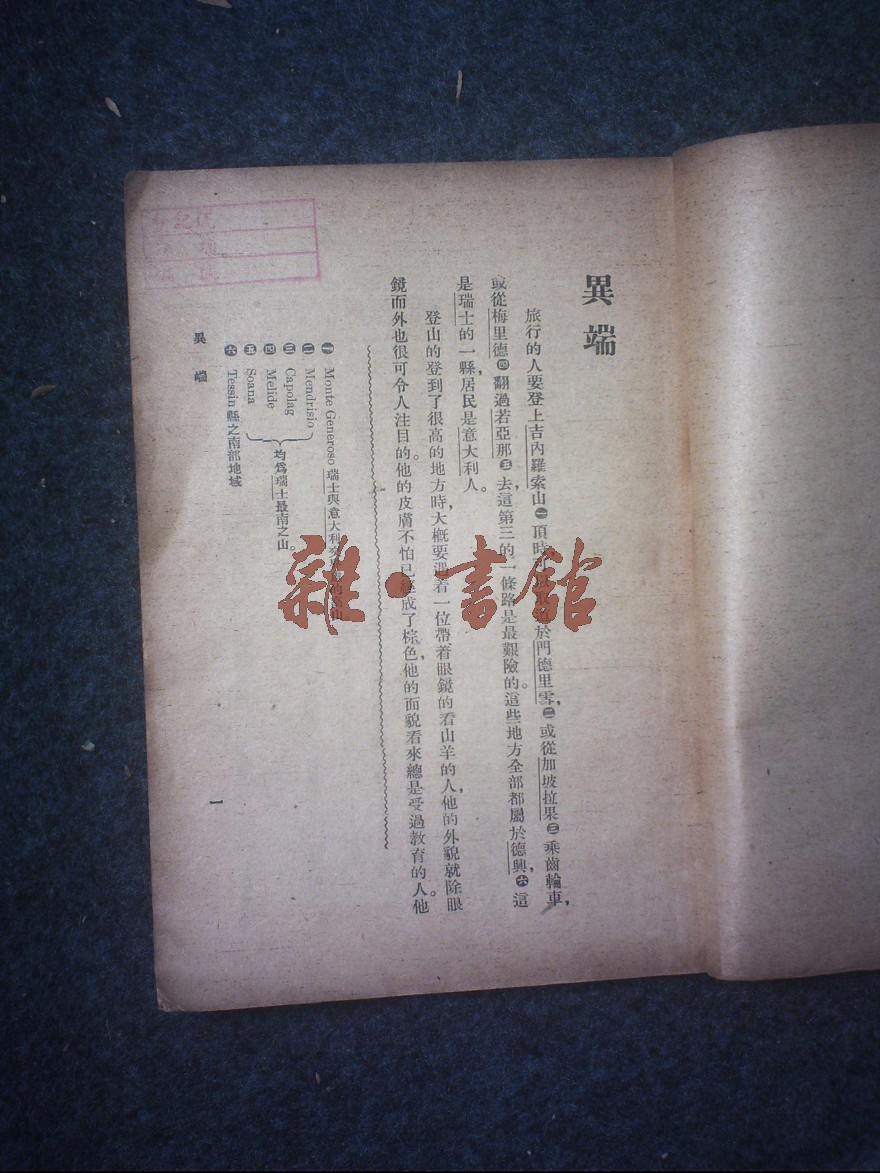 異端
旅行的人要登上吉內羅索山㊀頂時於門德里雩，㊁或從加坡拉果㊂乘齒輪車，
或從梅里德㊃翻過若亞那㊄去，這第三的一條路是最艱險的。這些地方全部都屬於德興，㊅這
是瑞士的一縣，居民是意大利人。
登山的登到了很高的地方時，大概要遇着一位帶着眼鏡的看山羊的人，他的外貌就除眼
鏡而外也很可令人注目的。他的皮膚不怕已經成了棕色，他的面貌看來總是受過教育的人。他
㊀ Monte Generoso 瑞士與意大利
㊁ Mendrisio
㊂ Capolag
㊃ Melide
㊄ Soana
均爲瑞士最南之山。
㊅ Tessin 縣之南部地域
異端
一
雜·書館